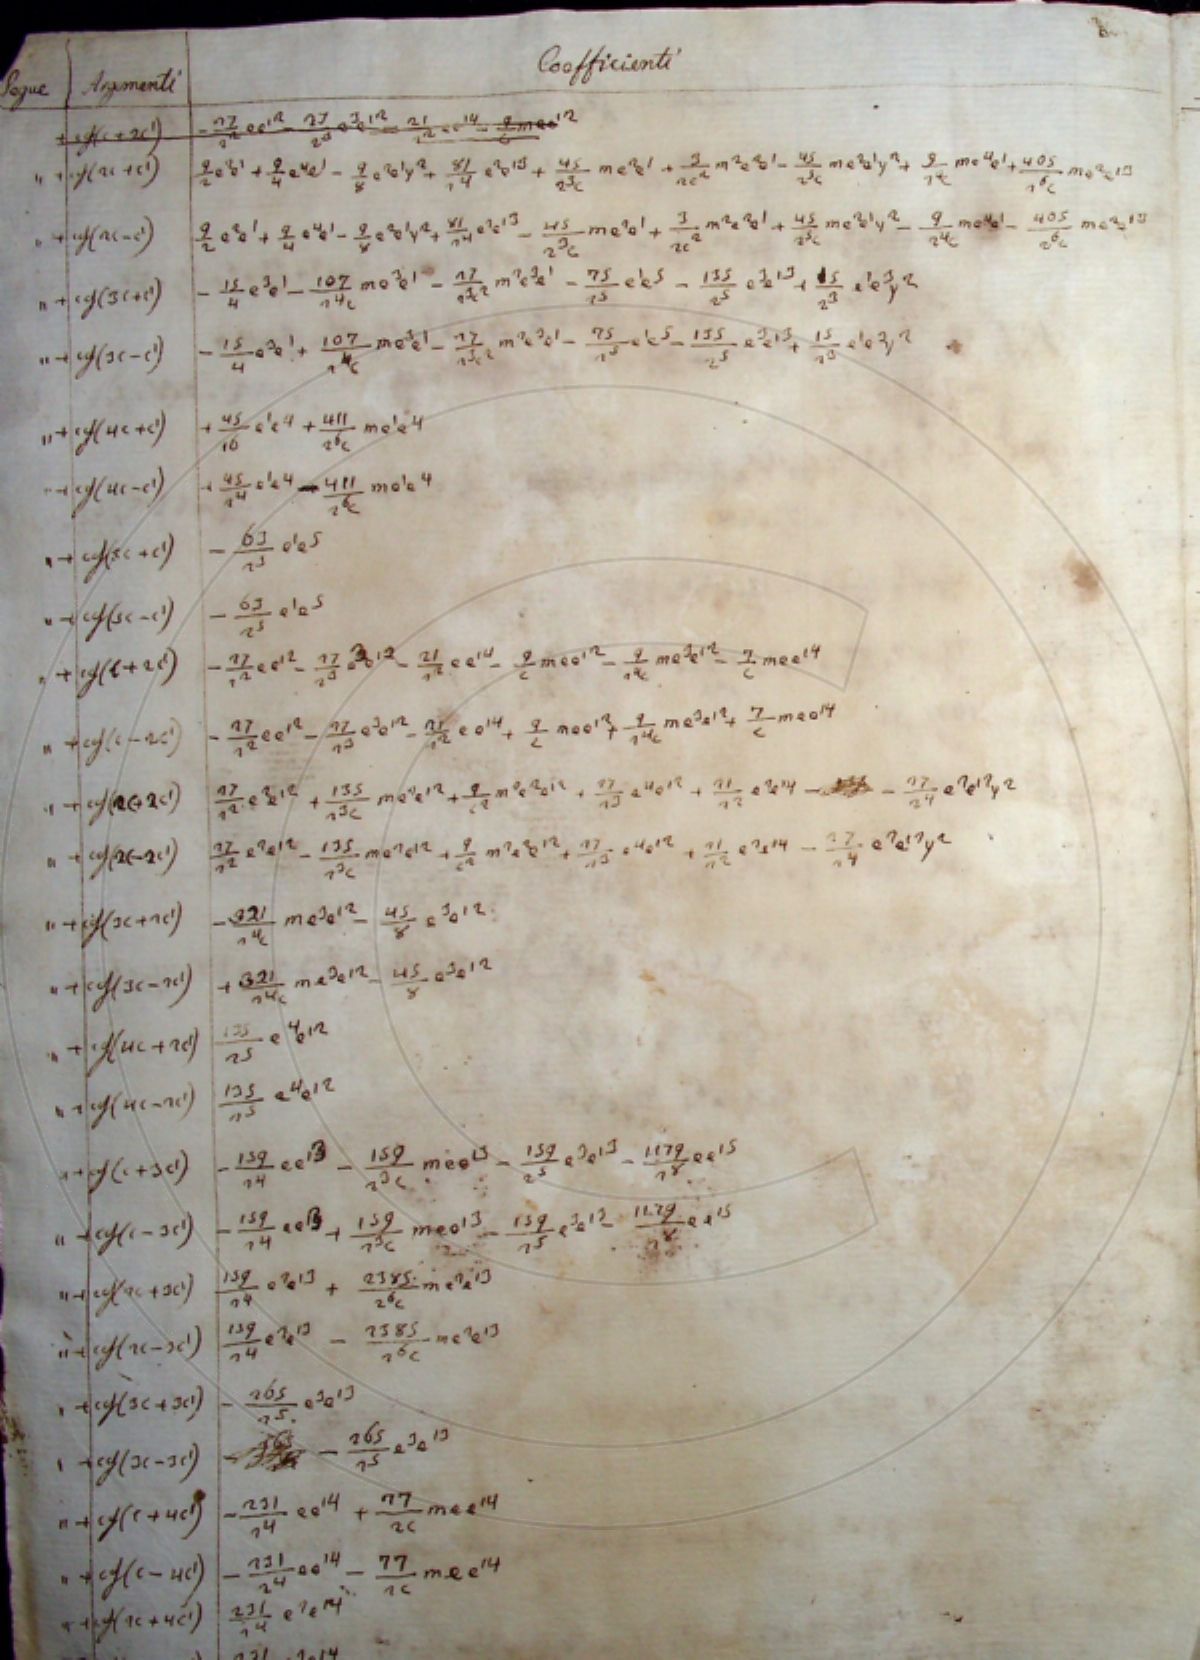 Segue Argomenti Coefficienti
+ cof(c+2c') - 27/2² ee'² - 27/2³ e³e'² - 21/2² ee'⁴ - 9/c mee'²
" + cof(2c+c') 9/2 e²e' + 9/4 e⁴e' - 9/8 e²e'γ² + 81/2⁴ e²e'³ + 45/2³c me²e' + 3/2c² m²e²e' - 45/2⁵c me²e'γ² + 9/2⁴c me⁴e' + 405/2⁶c me²e'³
" + cof(2c-c') 9/2 e²e' + 9/4 e⁴e' - 9/8 e²e'γ² + 81/2⁴ e²e'³ - 45/2³c me²e' + 3/2c² m²e²e' + 45/2⁵c me²e'γ² - 9/2⁴c me⁴e' - 405/2⁶c me²e'³
" + cof(3c+c') - 15/4 e³e' - 107/2⁴c me³e' - 27/2³c² m²e³e' - 75/2⁵ e'e⁵ - 135/2⁵ e³e'³ + 15/2³ e'e³γ²
" + cof(3c-c') - 15/4 e³e' + 107/2⁴c me³e' - 27/2³c² m²e³e' - 75/2⁵ e'e⁵ - 135/2⁵ e³e'³ + 15/2³ e'e³γ²
" + cof(4c+c') + 45/16 e'e⁴ + 411/2⁶c me'e⁴
" + cof(4c-c') + 45/2⁴ e'e⁴ - 411/2⁶c me'e⁴
" + cof(5c+c') - 63/2⁵ e'e⁵
" + cof(5c-c') - 63/2⁵ e'e⁵
" + cof(c+2c') - 27/2² ee'² - 27/2³ e³e'² - 21/2² ee'⁴ - 9/c mee'² - 9/2⁴c me³e'² - 7/c mee'⁴
" + cof(c-2c') - 27/2² ee'² - 27/2³ e³e'² - 21/2² ee'⁴ + 9/c mee'² + 9/2⁴c me³e'² + 7/c mee'⁴
" + cof(2c+2c') 27/2² e²e'² + 135/2³c me²e'² + 9/c² m²e²e'² + 27/2³ e⁴e'² + 21/2² e²e'⁴ - 27/2⁴ e²e'²γ²
" + cof(2c-2c') 27/2² e²e'² - 135/2³c me²e'² + 9/c² m²e²e'² + 27/2³ e⁴e'² + 21/2² e²e'⁴ - 27/2⁴ e²e'²γ²
" + cof(3c+2c') - 321/2⁴c me³e'² - 45/8 e³e'²
" + cof(3c-2c') + 321/2⁴c me³e'² - 45/8 e³e'²
" + cof(4c+2c') 135/2⁵ e⁴e'²
" + cof(4c-2c') 135/2⁵ e⁴e'²
" + cof(c+3c') - 159/2⁴ ee'³ - 159/2³c mee'³ - 159/2⁵ e³e'³ - 1179/2⁸ ee'⁵
" + cof(c-3c') - 159/2⁴ ee'³ + 159/2³c mee'³ - 159/2⁵ e³e'³ - 1179/2⁸ ee'⁵
" + cof(2c+3c') 159/2⁴ e²e'³ + 2385/2⁶c me²e'³
" + cof(2c-3c') 159/2⁴ e²e'³ - 2385/2⁶c me²e'³
" + cof(3c+3c') - 265/2⁵ e³e'³
" + cof(3c-3c') - 265/2⁵ e³e'³
" + cof(c+4c') - 231/2⁴ ee'⁴ + 77/2c mee'⁴
" + cof(c-4c') - 231/2⁴ ee'⁴ - 77/2c mee'⁴
" + cof(2c+4c') 231/2⁴ e²e'⁴